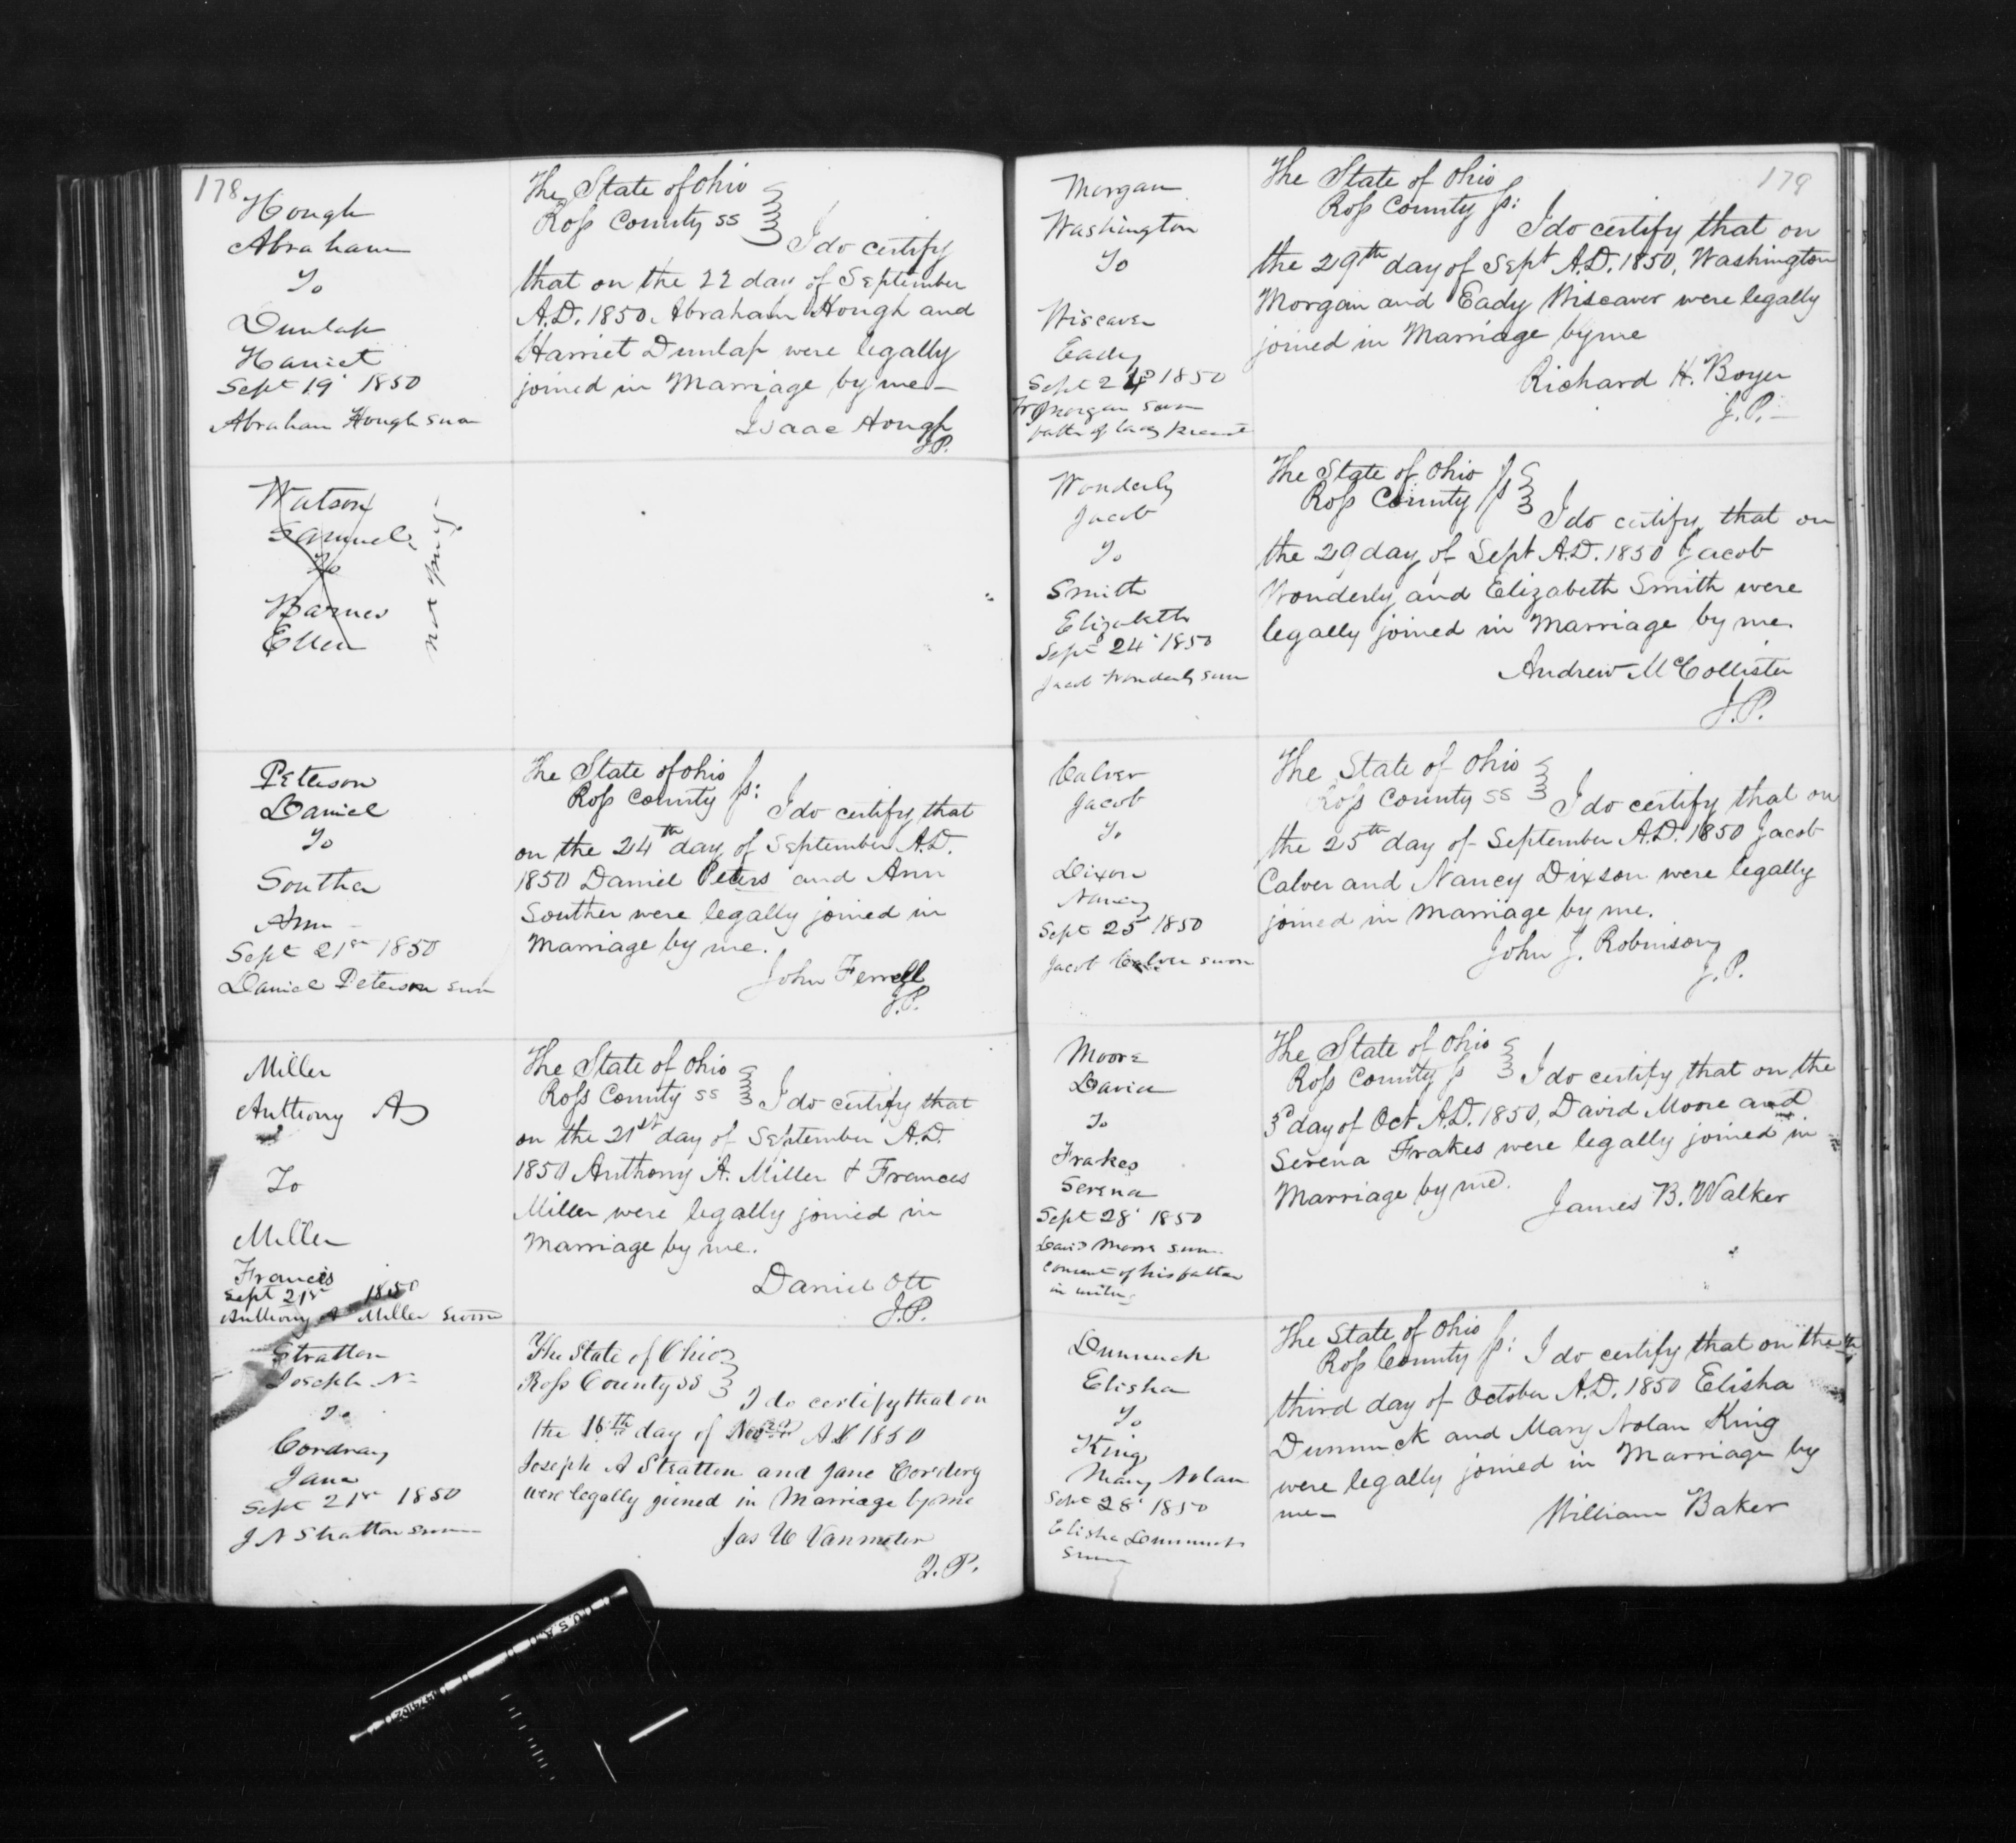 178
Hough
Abraham
To
Dunlap
Harriet
Sept 19 1850
Abraham Hough swn
The State of Ohio
Ross County ss
I do certify
that on the 22 day of September
A.D. 1850. Abraham Hough and
Harriet Dunlap were legally
joined in Marriage by me
Isaac Hough
J.P.
Watson
Samuel
To
Barnes
Ellen
Peterson
Daniel
To
Souther
Ann
Sept 21st 1850
Daniel Peterson swn
The State of Ohio
Ross County ss:
I do certify that
on the 24th day of September A.D.
1850 Daniel Peters and Ann
Souther were legally joined in
Marriage by me.
John Ferrell
J.P.
Miller
Anthony A
To
Miller
Francis
Sept 21st 1850
Anthony A Miller sworn
The State of Ohio
Ross County ss
I do certify that
on the 21st day of September A.D.
1850 Anthony A. Miller & Frances
Miller were legally joined in
Marriage by me.
Daniel Ott
J.P.
Stratton
Joseph N
To
Cordray
Jane
Sept 21st 1850
J N Stratton swn
The State of Ohio
Ross County ss
I do certify that on
the 16th day of A D 1850
Joseph A Stratton and Jane Cordery
were legally joined in Marriage by me
Jas Vanmeter
J.P.
179
Morgan
Washington
To
Wiscaver
Eady
Sept 1850
Morgan swn
father of Eady present
The State of Ohio
Ross County ss:
I do certify that on
the 29th day of Sept A.D. 1850, Washington
Morgan and Eady Wiscaver were legally
joined in Marriage by me
Richard H. Boyer
J.P.
Wonderly
Jacob
To
Smith
Elizabeth
Sept 24 1850
Jacob Wonderly swn
The State of Ohio
Ross County ss
I do certify that on
the 29 day of Sept A.D. 1850 Jacob
Wonderly and Elizabeth Smith were
legally joined in Marriage by me.
Andrew McCollister
J.P.
Calver
Jacob
To
Dixon
Nancy
Sept 25 1850
Jacob Calver sworn
The State of Ohio
Ross County ss
I do certify that on
the 25th day of September A.D. 1850 Jacob
Calver and Nancy Dixson were legally
joined in Marriage by me.
John J. Robinson
J.P.
Moore
David
To
Frakes
Serena
Sept 28 1850
David Moore swn
consent of his father
in
The State of Ohio
Ross County ss
I do certify that on the
3d day of Oct A.D. 1850, David Moore and
Serena Frakes were legally joined in
Marriage by me.
James B. Walker
Dummuck
Elisha
To
King
Mary Nolan
Sept 28 1850
Elisha Dummuck
swn
The State of Ohio
Ross County ss:
I do certify that on the
third day of October A.D. 1850 Elisha
Dummuck and Mary Nolan King
were legally joined in Marriage by
me
William Baker